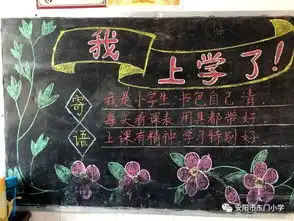 我上学了！
寄语
我是小学生 书包自己清
每天看课表 用具都带好
上课有精神 学习特别好
安阳市东门小学